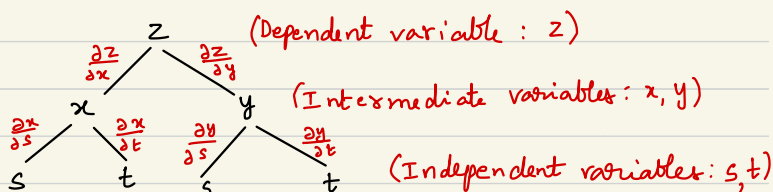 z (Dependent variable : z)
∂z/∂x ∂z/∂y
x y (Intermediate variables: x, y)
∂x/∂s ∂x/∂t ∂y/∂s ∂y/∂t
s t s t (Independent variables: s,t)